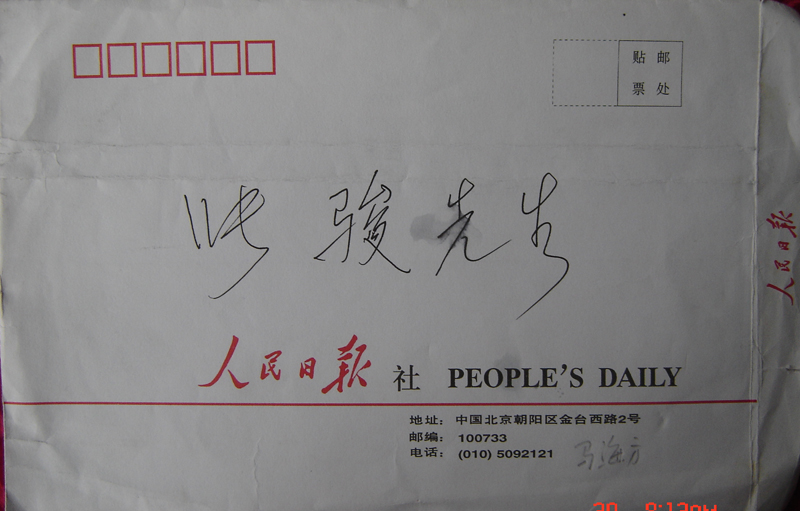 贴 邮
票 处
张骏先生
人民日报
人民日报 社 PEOPLE'S DAILY
地址：中国北京朝阳区金台西路2号
邮编：100733
电话：(010) 5092121
马海方